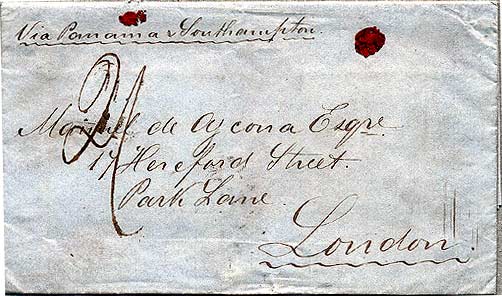 Via Panama & Southampton.
2/
Manuel de Aycona Esqre
17 Hereford Street.
Park Lane.
London